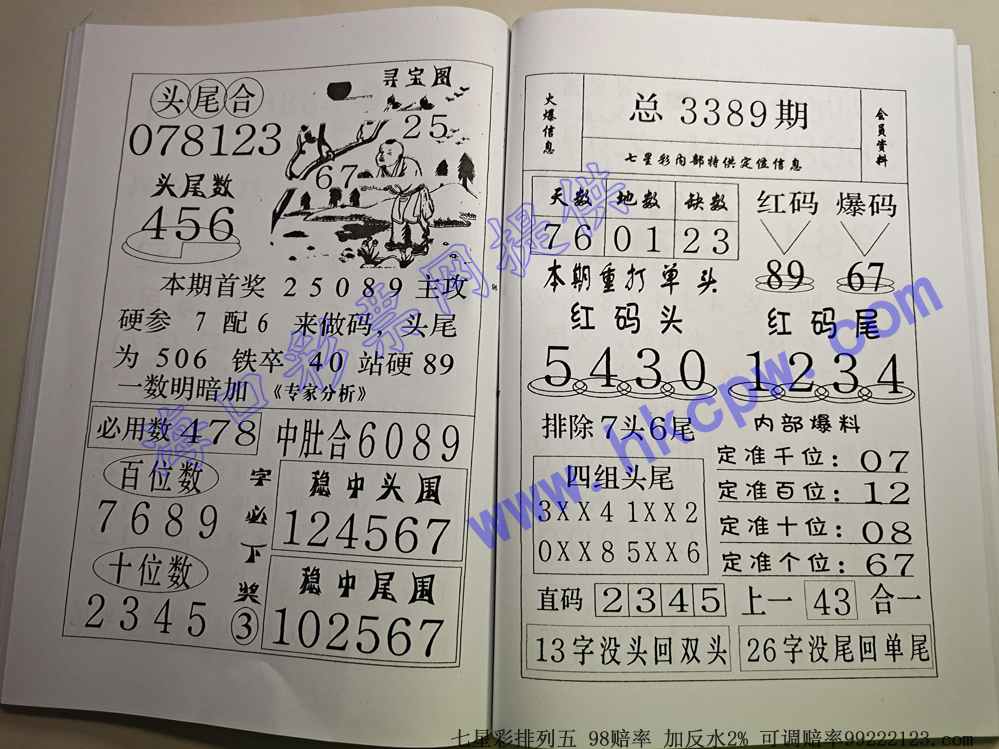 头尾合
078123
头尾数
456
寻宝图
25
67
本期首奖 25089 主攻
硬参 7 配 6 来做码,头尾
为 506 铁卒 40 站硬 89
一数明暗加 《专家分析》
必用数 478
中肚合6089
百位数
7689
十位数
2345
字必下奖③
稳中头围
124567
稳中尾围
102567
火爆信息
总 3389期
七星彩内部特供定位信息
会员资料
天数 地数 缺数
76 01 23
红码 爆码
89 67
本期重打单头
红码头 红码尾
5430 1234
排除 7头6尾
四组头尾
3XX4 1XX2
0XX8 5XX6
内部爆料
定准千位:07
定准百位:12
定准十位:08
定准个位:67
直码 2345 上一 43 合一
13字没头回双头 26字没尾回单尾
海口彩票网提供
www.hkcpw.com
七星彩排列五 98赔率 加反水2% 可调赔率99222123.com